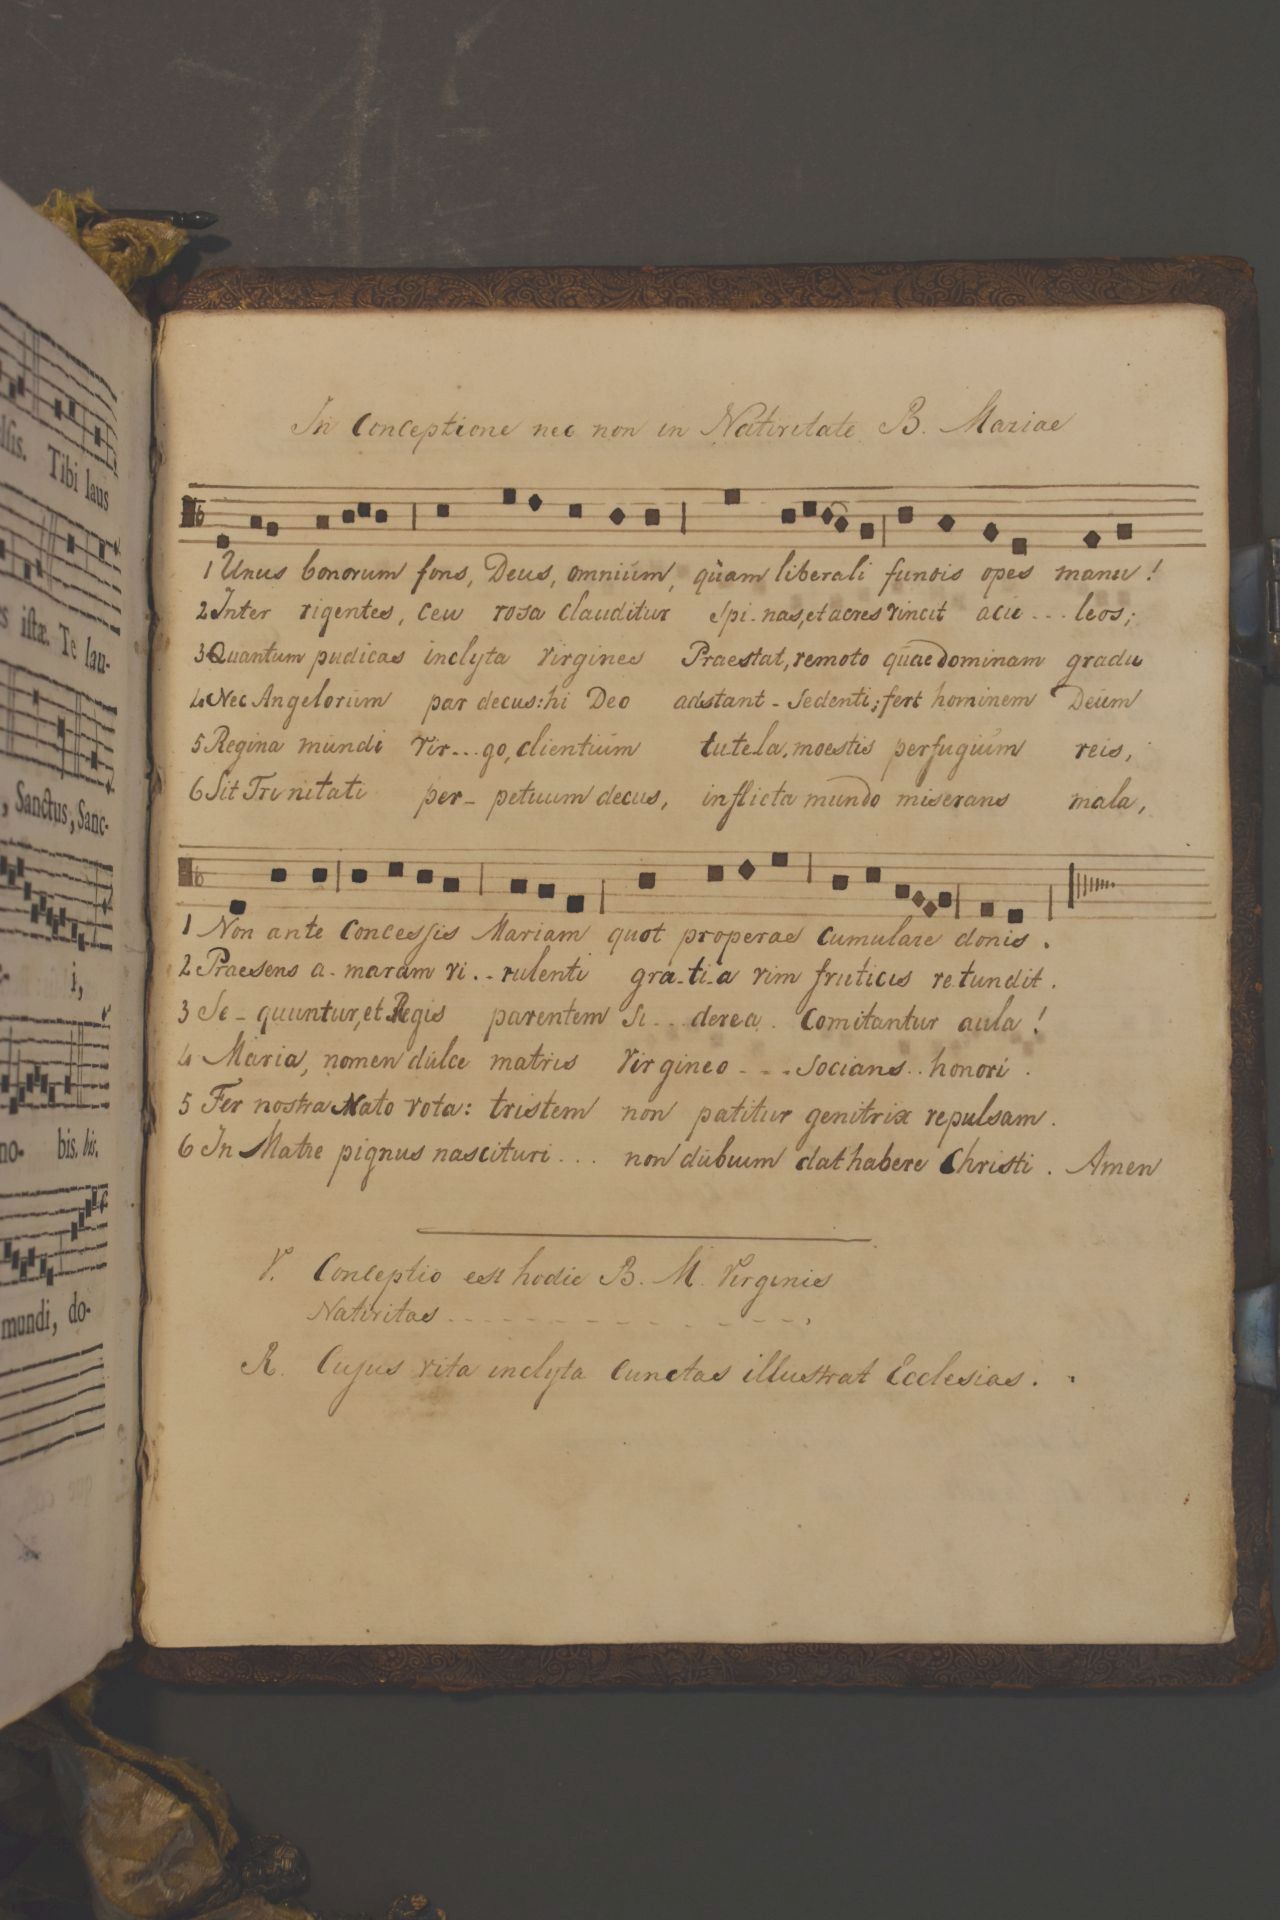 lsis. Tibi laus
es istæ. Te lau-
, Sanctus, Sanc-
i,
no- bis. bis.
mundi, do-
In Conceptione nec non in Nativitate B. Mariae
1 Unus bonorum fons, Deus, omnium, quam liberali fundis opes manu!
2 Inter rigentes, ceu rosa clauditur Spi-nas, et acres vincit acu...leos;
3 Quantum pudicas inclyta Virgines Praestat, remoto quae dominam gradu
4 Nec Angelorum par decus: hi Deo adstant - sedenti; fert hominem Deum
5 Regina mundi Vir...go, clientium tutela, moestis perfugium reis,
6 Sit Trinitati per- petuum decus, inflicta mundo miserans mala,
1 Non ante Concessis Mariam quot properas cumulare donis.
2 Praesens a-maram vi..rulenti gra-ti-a vim fruticis retundit.
3 Se-quuntur, et Regis parentem Si...derea. Comitantur aula!
4 Maria, nomen dulce matris Virgineo - - - socians.. honori.
5 Fer nostra Nato vota: tristem non patitur genitrix repulsam.
6 In Matre pignus nascituri... non dubium dat habere Christi. Amen
V. Conceptio est hodie B. M. Virginis
Nativitas - - - - - - - - - - - -,
R. Cujus vita inclyta cunctas illustrat Ecclesias.